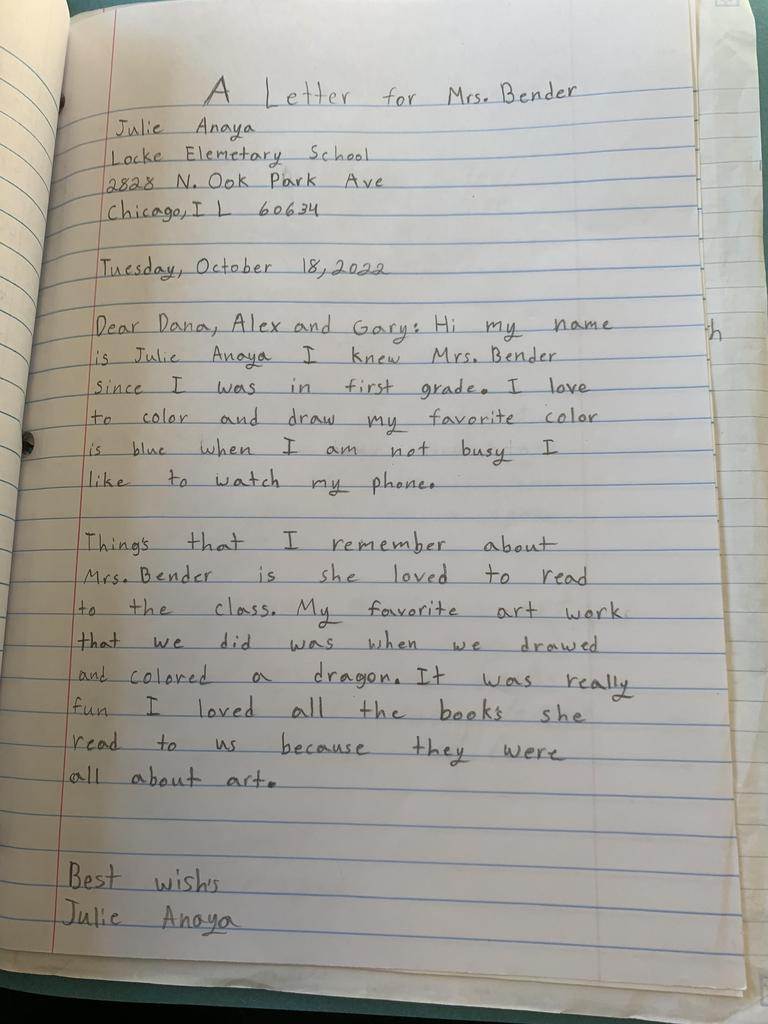 A Letter for Mrs. Bender
Julie Anaya
Locke Elemetary School
2828 N. Ook Park Ave
Chicago, IL 60634
Tuesday, October 18, 2022
Dear Dana, Alex and Gary: Hi my name
is Julie Anaya I knew Mrs. Bender
since I was in first grade. I love
to color and draw my favorite color
is blue when I am not busy I
like to watch my phone.
Thing's that I remember about
Mrs. Bender is she loved to read
to the class. My favorite art work
that we did was when we drawed
and colored a dragon. It was really
fun I loved all the book's she
read to us because they were
all about art.
Best wish's
Julie Anaya
h